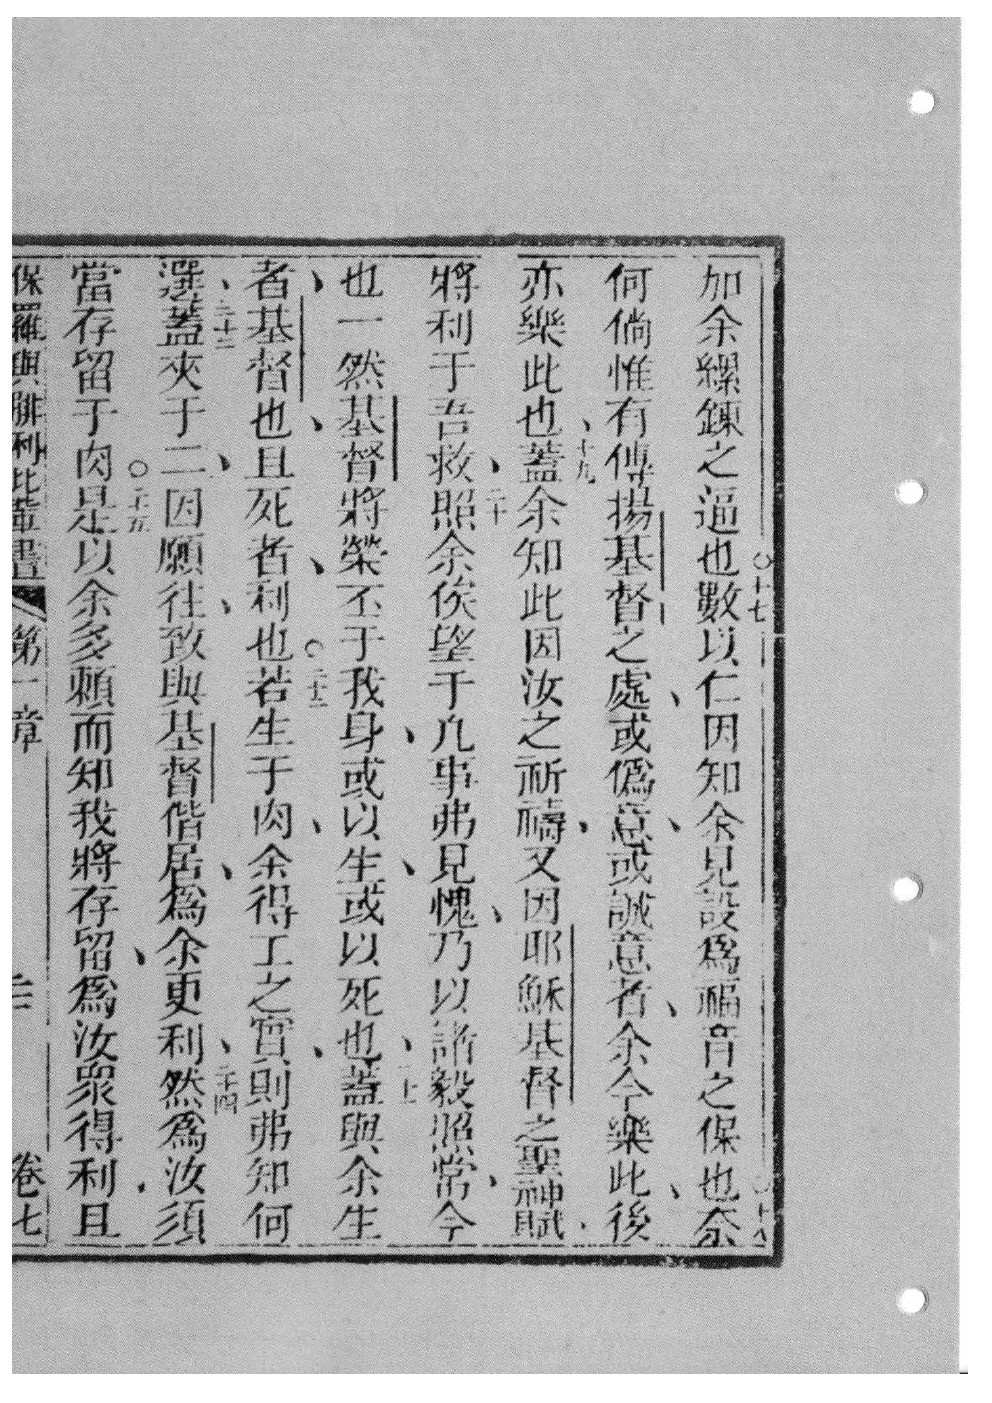 加余縲鍊之逼也○十七數以仁因知余見設爲福音之保也○十八奈
何倘惟有傳揚基督之處、或僞意、或誠意者、余今樂此、後
亦樂此也、十九蓋余知此因汝之祈禱、又因耶穌基督之聖神賦、
將利于吾救、二十照余俟望于凢事弗見愧、乃以諸毅照常、今
也一然基督將榮丕于我身、或以生、或以死也、二十一蓋與余生
者、基督也、且死者、利也○二十二若生于肉、余得工之實、則弗知何
選、二十三蓋夾于二、因願往、致與基督偕居、爲余更利、二十四然爲汝須
當存留于肉○二十五是以余多賴而知我將存留、爲汝衆得利、且
保羅與腓利比輩書 第一章 三 卷七